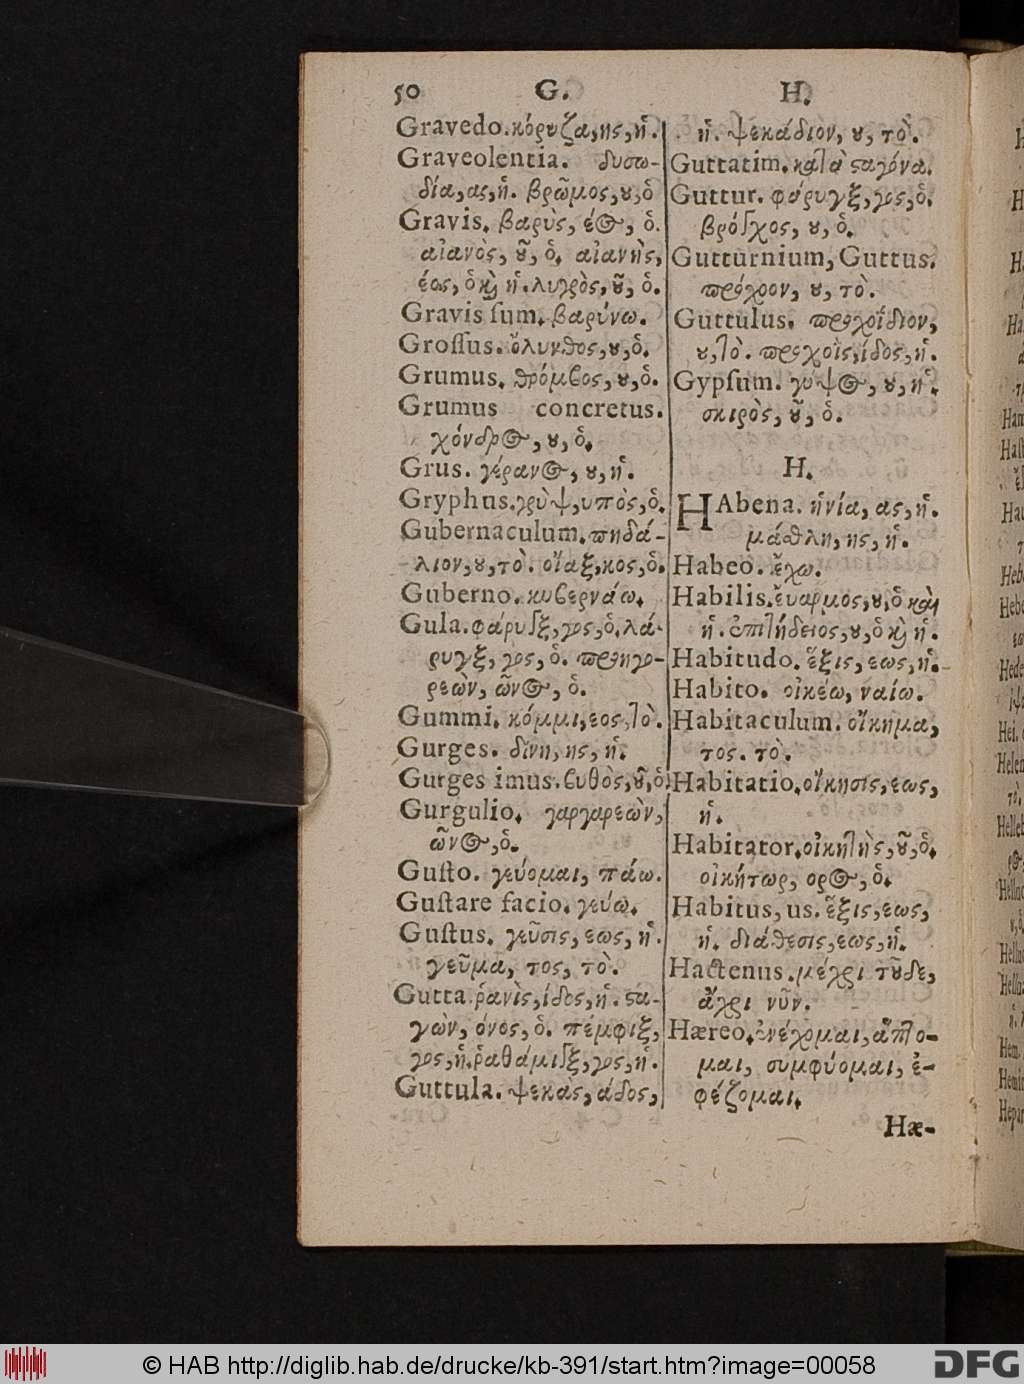 50 G. H.
Gravedo. κόρυζα, ης, ἡ.
Graveolentia. δυσω-
δία, ας, ἡ. βρῶμος, ου, ὁ
Gravis. βαρὺς, έος, ὁ.
αἰανὸς, οῦ, ὁ. αἰανὴς,
έος, ὁ καὶ ἡ. λυγρὸς, οῦ, ὁ.
Gravis ſum. βαρύνω.
Groſſus. ὄλυνθος, ου, ὁ.
Grumus. θρόμβος, ου, ὁ.
Grumus concretus.
χόνδρος, ου, ὁ.
Grus. γέρανος, ου, ἡ.
Gryphus. γρὺψ, υπὸς, ὁ.
Gubernaculum. πηδά-
λιον, ου, τὸ. οἴαξ, κος, ὁ.
Guberno. κυβερνάω.
Gula. φάρυγξ, γος, ὁ. λά-
ρυγξ, γος, ὁ. προηγο-
ρεὼν, ῶνος, ὁ.
Gummi. κόμμι, εος, τὸ.
Gurges. δίνη, ης, ἡ.
Gurges imus. βυθὸς, οῦ, ὁ.
Gurgulio. γαργαρεὼν,
ῶνος, ὁ.
Guſto. γεύομαι, πάω.
Guſtare facio. γεύω.
Guſtus. γεῦσις, εως, ἡ.
γεῦμα, τος, τὸ.
Gutta. ῥανὶς, ίδος, ἡ. στα-
γὼν, όνος, ὁ. πέμφιξ,
γος, ἡ. ῥαθάμιγξ, γος, ἡ.
Guttula. ψεκὰς, άδος,
ἡ. ψεκάδιον, ου, τὸ.
Guttatim. κατὰ σταγόνα.
Guttur. φάρυγξ, γος, ὁ.
βρόγχος, ου, ὁ.
Gutturnium, Guttus.
πρόχοον, ου, τὸ.
Guttulus. προχοΐδιον,
ου, τὸ. προχοῒς, ίδος, ἡ.
Gypſum. γύψος, ου, ἡ.
σκιρὸς, οῦ, ὁ.
H.
HAbena. ἡνία, ας, ἡ.
μάθλη, ης, ἡ.
Habeo. ἔχω.
Habilis. ἔυαρμος, ου, ὁ καὶ
ἡ. ἐπιτήδειος, ου, ὁ καὶ ἡ.
Habitudo. ἕξις, εως, ἡ.
Habito. οἰκέω, ναίω.
Habitaculum. οἴκημα,
τος. τὸ.
Habitatio. οἴκησις, εως,
ἡ.
Habitator. οἰκητὴς, οῦ, ὁ.
οἰκήτωρ, ορος, ὁ.
Habitus, us. ἕξις, εως,
ἡ. διάθεσις, εως, ἡ.
Hactenus. μέχρι τοῦδε,
ἄχρι νῦν.
Hæreo. ἐνέχομαι, ἅπτο-
μαι, συμφύομαι, ἐ-
φέζομαι.
Hæ-
© HAB http://diglib.hab.de/drucke/kb-391/start.htm?image=00058
DFG